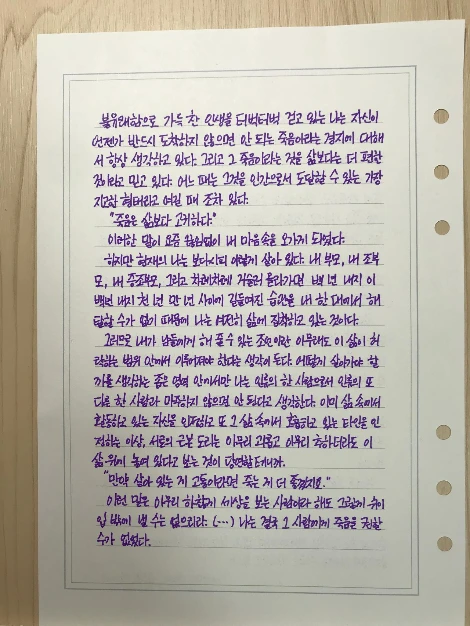 불유쾌함으로 가득 찬 인생을 터벅터벅 걷고 있는 나는 자신이
언젠가 반드시 도착하지 않으면 안 되는 죽음이라는 경지에 대해
서 항상 생각하고 있다. 그리고 그 죽음이라는 것을 삶보다는 더 편한
것이라고 믿고 있다. 어느 때는 그것을 인간으로서 도달할 수 있는 가장
지고한 형태라고 여길 때조차 있다.
"죽음은 삶보다 고귀하다."
이러한 말이 요즘 끊임없이 내 마음속을 오가게 되었다.
하지만 현재의 나는 보다시피 이렇게 살아 있다. 내 부모, 내 조부
모, 내 증조부모, 그리고 차례차례 거슬러 올라가면 백 년 내지 이
백 년 내지 천 년 만 년 사이에 길들여진 습관을 내 한 대에서 해
탈할 수가 없기 때문에 나는 여전히 삶에 집착하고 있는 것이다.
그러므로 내가 남들에게 해 줄 수 있는 조언이란 아무래도 이 삶이 허
락하는 범위 안에서 이루어져야 한다는 생각이 든다. 어떻게 살아가야 할
까를 생각하는 좁은 영역 안에서만 나는 인류의 한 사람으로서 인류의 또
다른 한 사람과 마주하지 않으면 안 된다고 생각한다. 이미 삶 속에서
활동하고 있는 자신을 인정하고 또 그 삶 속에서 호흡하고 있는 타인을 인
정하는 이상, 서로의 근본 도리는 아무리 괴롭고 아무리 추하더라도 이
삶 위에 놓여 있다고 보는 것이 당연할 테니까.
"만약 살아 있는 게 고통이라면 죽는 게 더 좋겠지요."
이런 말은 아무리 하찮게 세상을 보는 사람이라 해도 그렇게 쉬이
입 밖에 낼 수는 없으리라. (…) 나는 결국 그 사람에게 죽음을 권할
수가 없었다.